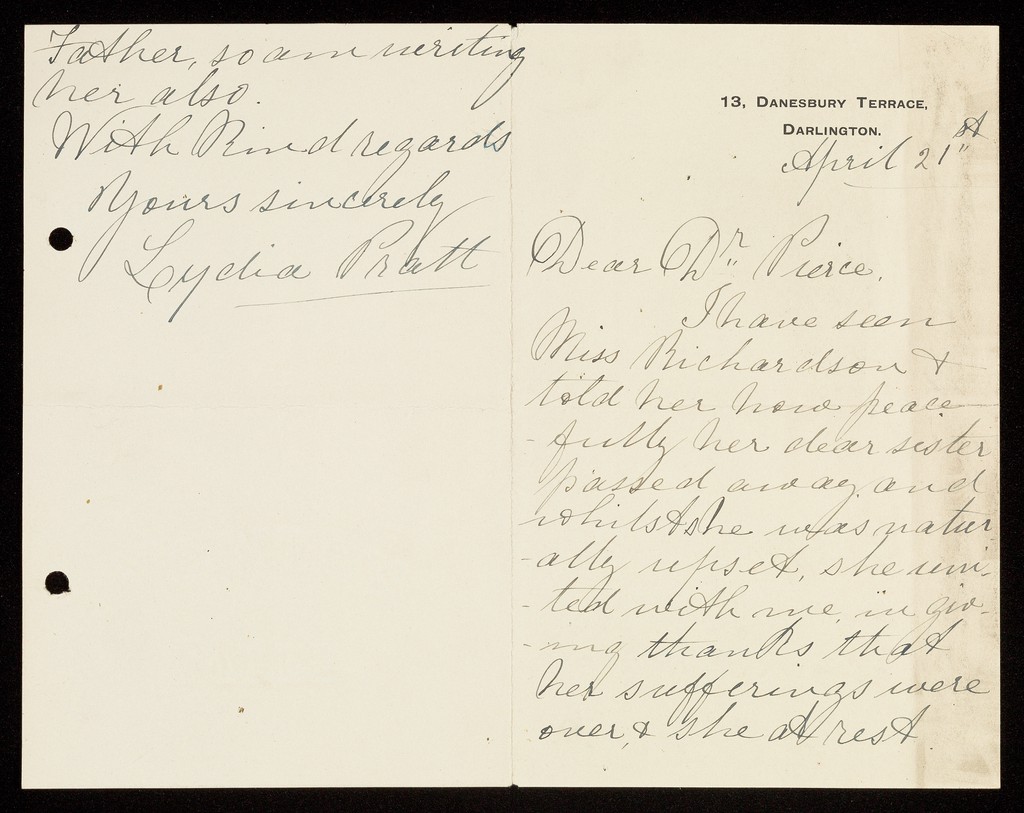 13, Danesbury Terrace,
Darlington.
April 21st
Dear Dr. Pierce,
I have seen
Miss Richardson &
told her how peace-
-fully her dear sister
passed away, and
whilst she was natur-
-ally upset, she uni-
-ted with me, in giv-
-ing thanks that
her sufferings were
over, & she at rest
Father, so am writing
her also.
With Kind regards
Yours sincerely
Lydia Pratt